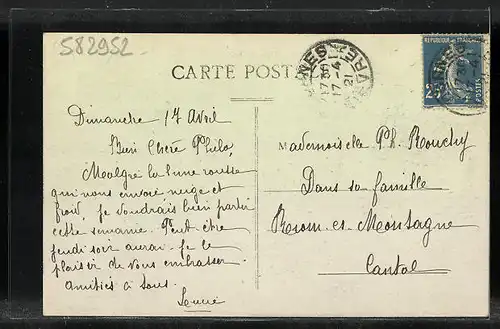 582952
CARTE POSTALE
17 30
17-4
21
REPUBLIQUE FRANÇAISE
25
POSTES
Dimanche 17 Avril
Bien Chère Philo,
Malgré la lune rousse
qui nous envoie neige et
froid, je voudrais bien partir
cette semaine. Peut-être
jeudi soir aurai-je le
plaisir de vous embrasser.
Amitiés à tous.
Mademoiselle Ph. Rouchy
Dans sa famille
Riom-es-Montagne
Cantal